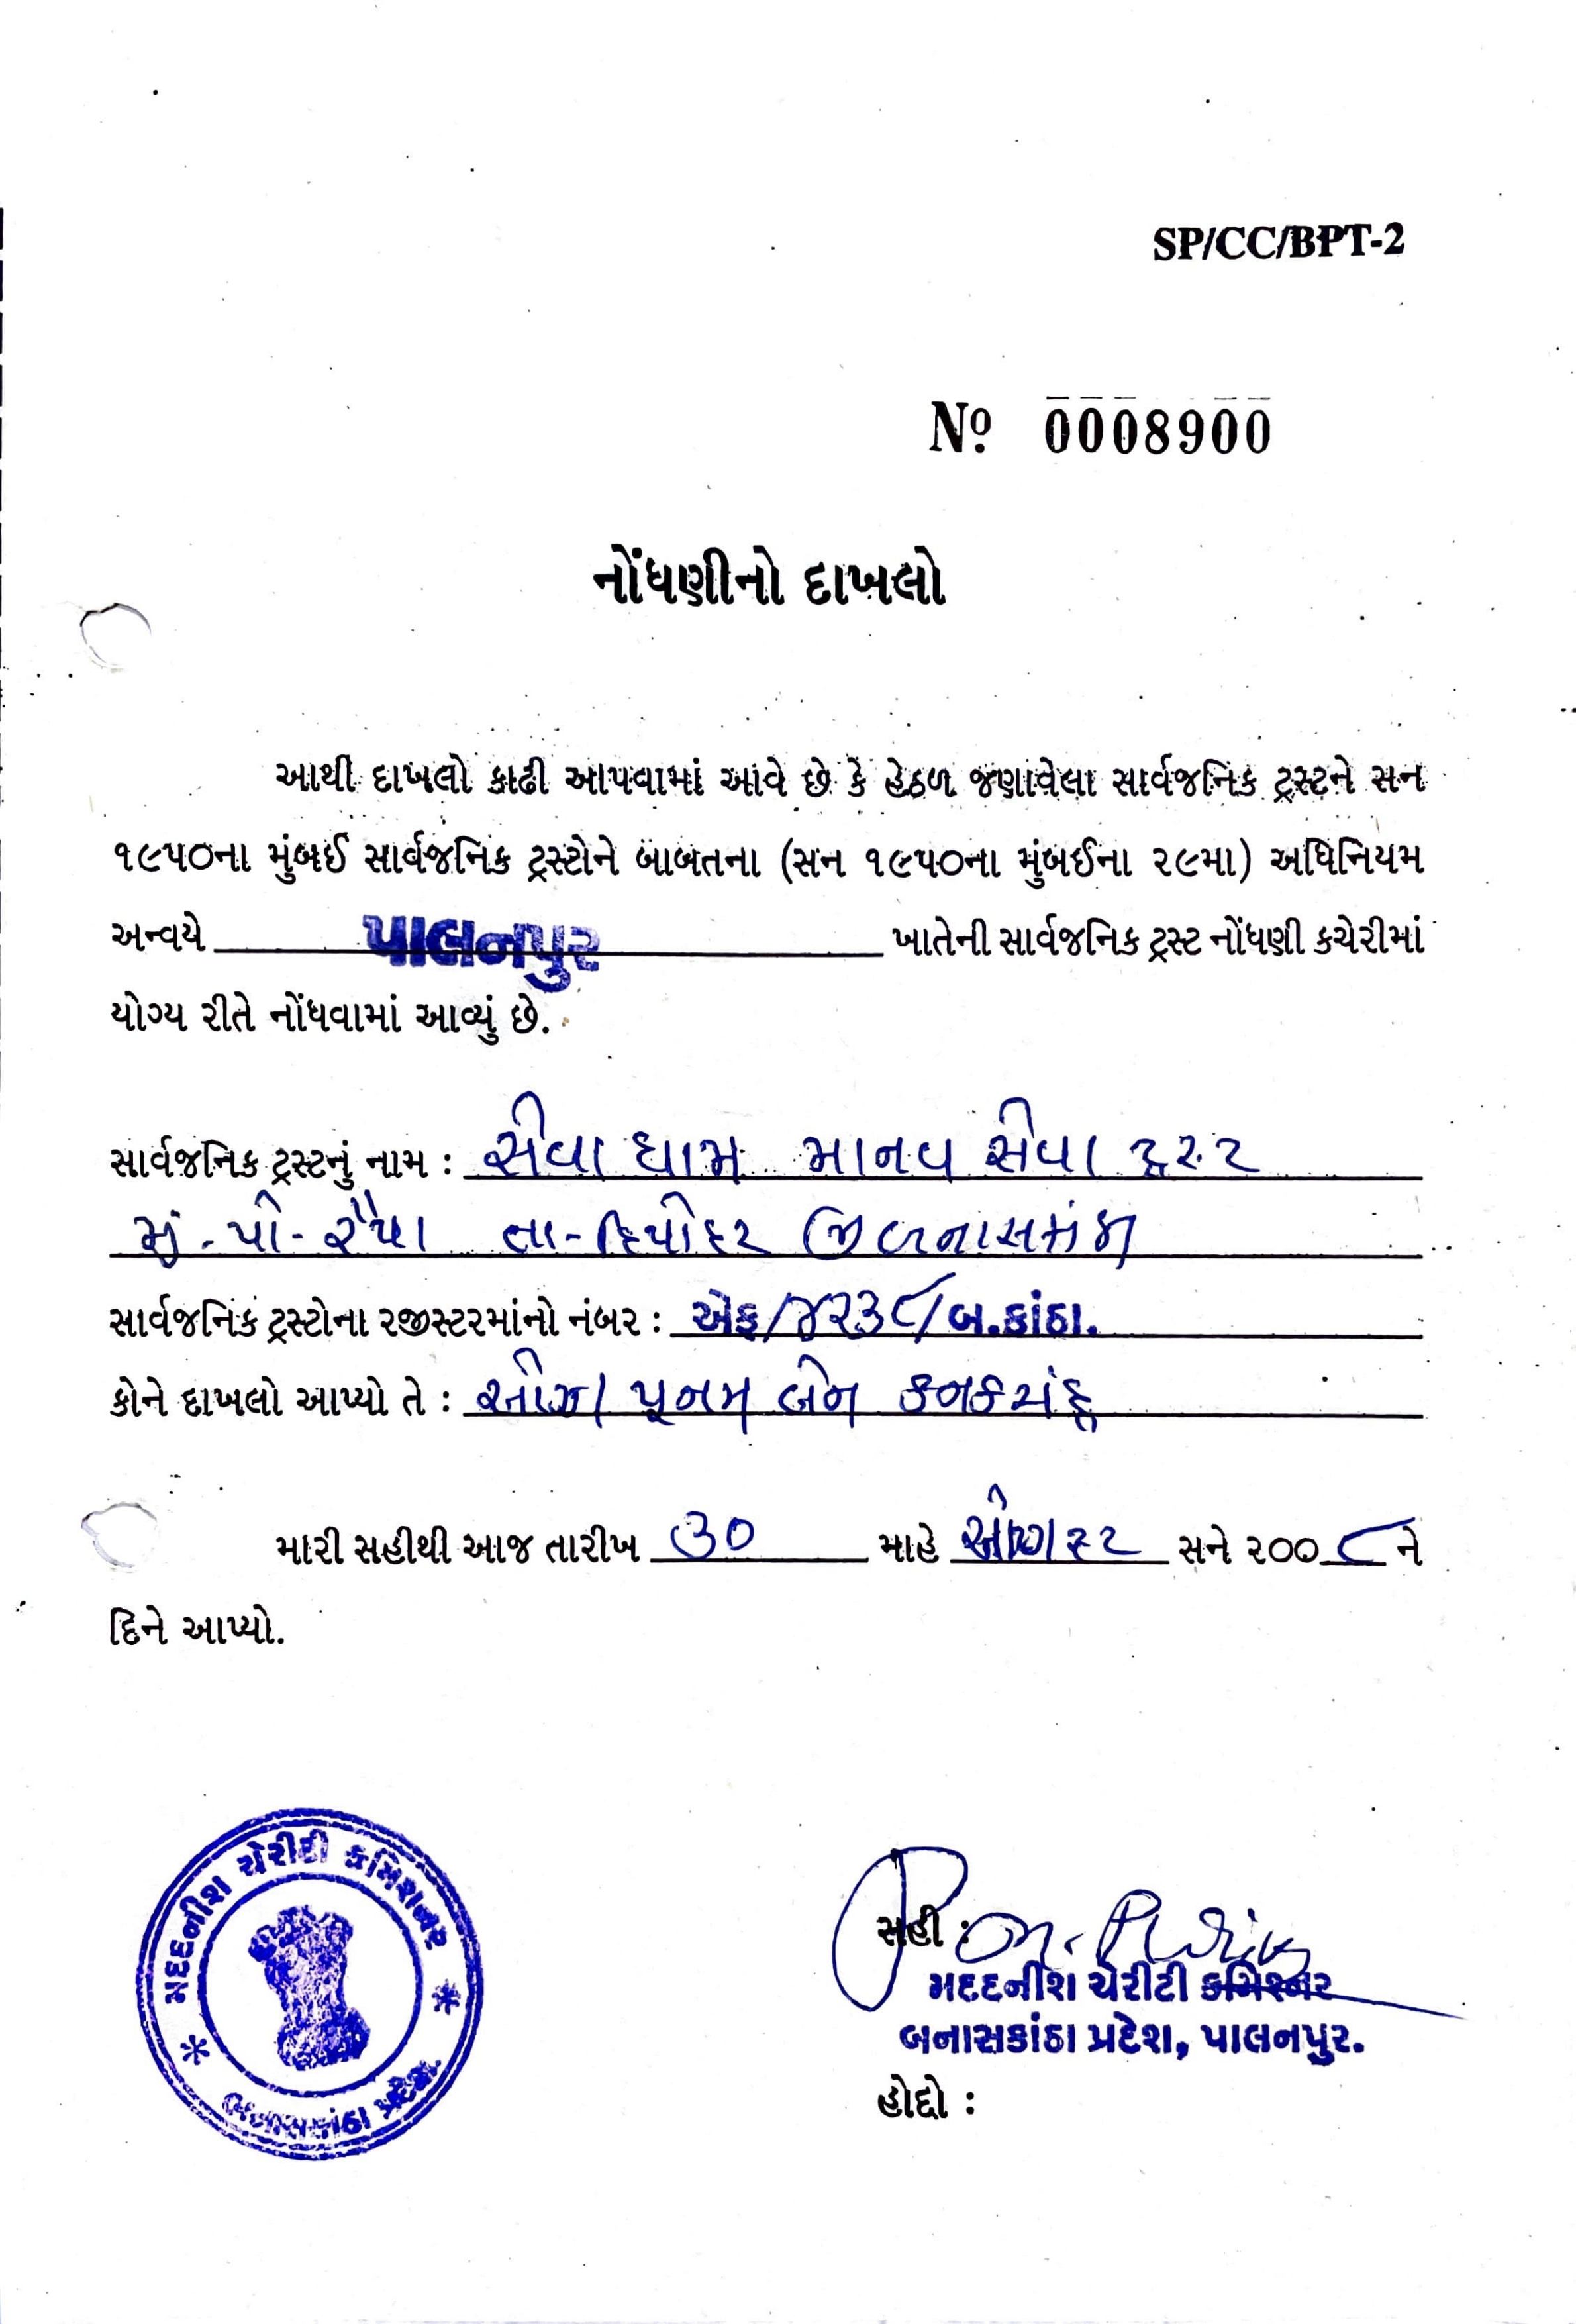 SP/CC/BPT-2
Nº 0008900
નોંધણીનો દાખલો
આથી દાખલો કાઢી આપવામાં આવે છે કે હેઠળ જણાવેલા સાર્વજનિક ટ્રસ્ટને સન
૧૯૫૦ના મુંબઈ સાર્વજનિક ટ્રસ્ટોને બાબતના (સન ૧૯૫૦ના મુંબઈના ૨૯મા) અધિનિયમ
અન્વયે પાલનપુર ખાતેની સાર્વજનિક ટ્રસ્ટ નોંધણી કચેરીમાં
યોગ્ય રીતે નોંધવામાં આવ્યું છે.
સાર્વજનિક ટ્રસ્ટનું નામ : સેવા ધામ માનવ સેવા ટ્રસ્ટ
મું-પો-રૈયા તા-દિયોદર જી બનાસકાંઠા
સાર્વજનિક ટ્રસ્ટોના રજીસ્ટરમાંનો નંબર : એફ/૪૨૩૮/બ.કાંઠા.
કોને દાખલો આપ્યો તે : ઓઝા પૂનમ બેન કનકચંદ્ર
મારી સહીથી આજ તારીખ ૩૦ માહે ઓગસ્ટ સને ૨૦૦૮ને
દિને આપ્યો.
મદદનીશ ચેરીટી કમિશનર
બનાસકાંઠા પ્રદેશ
સહી :
મદદનીશ ચેરીટી કમિશ્નર
બનાસકાંઠા પ્રદેશ, પાલનપુર.
હોદ્દો :